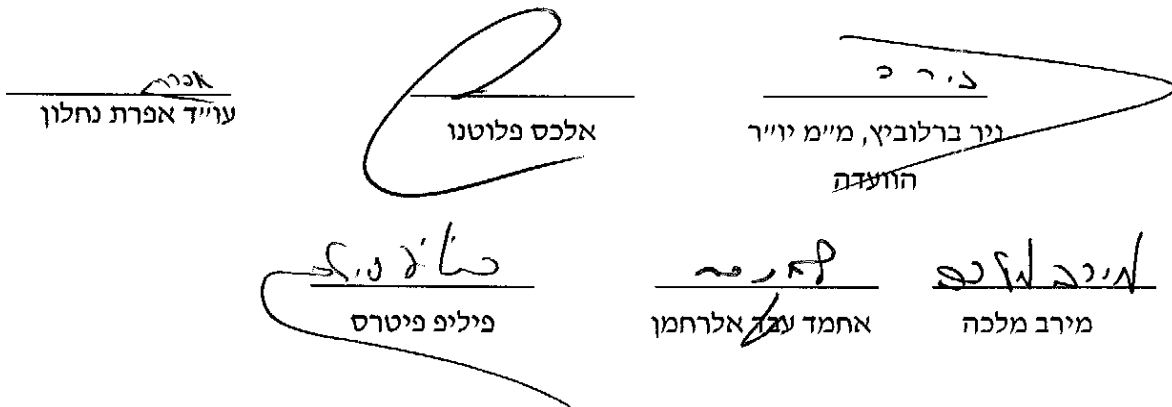 ניר ב
ניר ברלוביץ, מ״מ יו״ר
הוועדה
אלכס פלוטנו
אפרת
עו״ד אפרת נחלון
מירב מלכה
מירב מלכה
אחמד עבד אלרחמן
פיליפ פיטרס